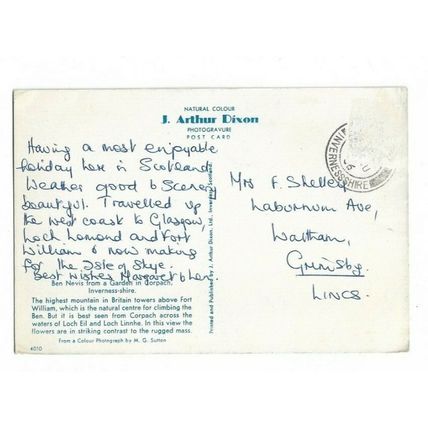 NATURAL COLOUR
J. Arthur Dixon
PHOTOGRAVURE
POST CARD
Having a most enjoyable
holiday here in Scotland
Weather good & Scenery
beautiful. Travelled up
the west coast to Glasgow,
Loch Lomond and Fort
William & now making
for the Isle of Skye.
Best wishes Margaret & Len.
Ben Nevis from a Garden in Corpach,
Inverness-shire.
The highest mountain in Britain towers above Fort
William, which is the natural centre for climbing the
Ben. But it is best seen from Corpach across the
waters of Loch Eil and Loch Linnhe. In this view the
flowers are in striking contrast to the rugged mass.
From a Colour Photograph by M. G. Sutton
4010
Printed and Published by J. Arthur Dixon, Ltd., Inverness, Scotland.
INVERNESS-SHIRE
Mrs F. Shelley
Laburnum Ave,
Waltham,
Grimsby.
LINCS.